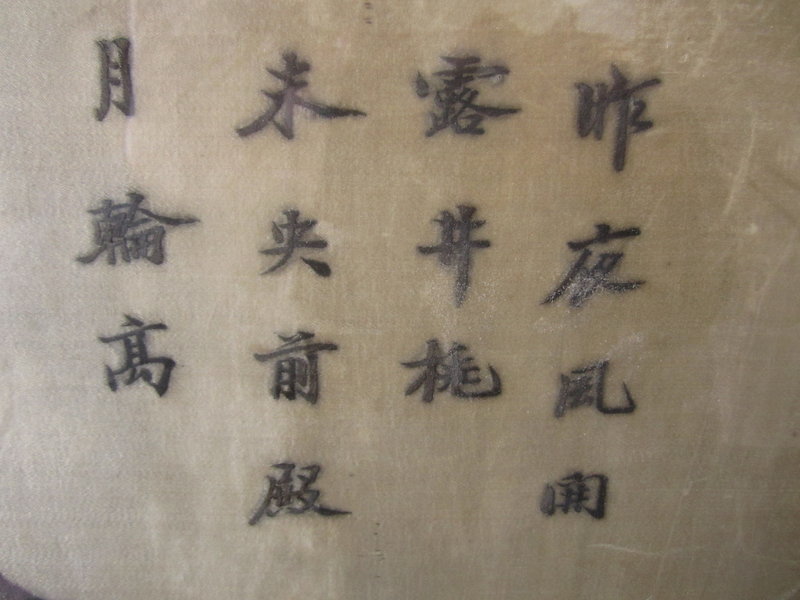 昨夜風開
露井桃
未央前殿
月輪高